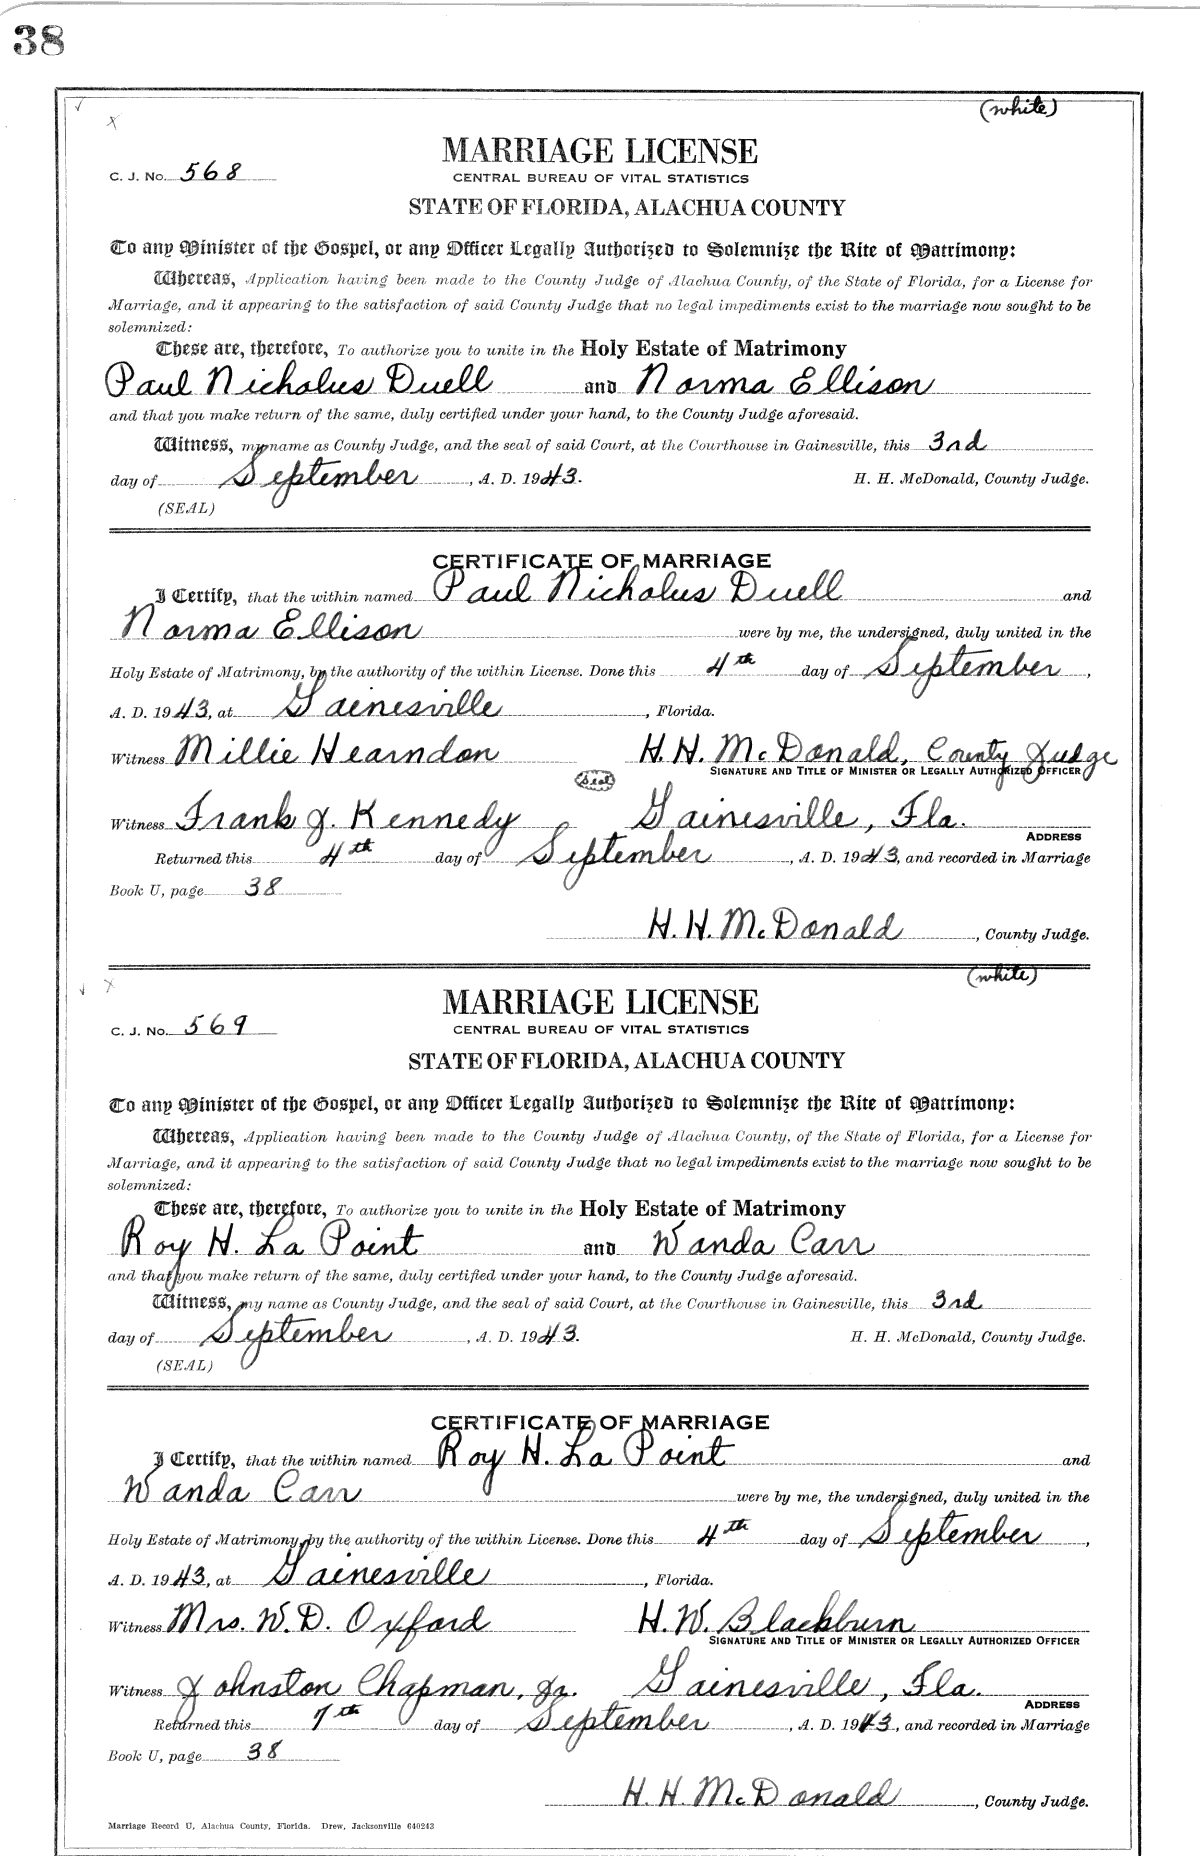 38
(white)
MARRIAGE LICENSE
C. J. No. 568
CENTRAL BUREAU OF VITAL STATISTICS
STATE OF FLORIDA, ALACHUA COUNTY
To any Minister of the Gospel, or any Officer Legally Authorized to Solemnize the Rite of Matrimony:
Whereas, Application having been made to the County Judge of Alachua County, of the State of Florida, for a License for
Marriage, and it appearing to the satisfaction of said County Judge that no legal impediments exist to the marriage now sought to be
solemnized:
These are, therefore, To authorize you to unite in the Holy Estate of Matrimony
Paul Nicholus Duell and Norma Ellison
and that you make return of the same, duly certified under your hand, to the County Judge aforesaid.
Witness, my name as County Judge, and the seal of said Court, at the Courthouse in Gainesville, this 3rd
day of September, A. D. 1943. H. H. McDonald, County Judge.
(SEAL)
CERTIFICATE OF MARRIAGE
I Certify, that the within named Paul Nicholus Duell and
Norma Ellison were by me, the undersigned, duly united in the
Holy Estate of Matrimony, by the authority of the within License. Done this 4th day of September,
A. D. 1943, at Gainesville, Florida.
Witness Millie Hearndon H. H. McDonald, County Judge
SIGNATURE AND TITLE OF MINISTER OR LEGALLY AUTHORIZED OFFICER
(Seal)
Witness Frank J. Kennedy Gainesville, Fla.
ADDRESS
Returned this 4th day of September, A. D. 1943, and recorded in Marriage
Book U, page 38
H. H. McDonald, County Judge.
(white)
MARRIAGE LICENSE
C. J. No. 569
CENTRAL BUREAU OF VITAL STATISTICS
STATE OF FLORIDA, ALACHUA COUNTY
To any Minister of the Gospel, or any Officer Legally Authorized to Solemnize the Rite of Matrimony:
Whereas, Application having been made to the County Judge of Alachua County, of the State of Florida, for a License for
Marriage, and it appearing to the satisfaction of said County Judge that no legal impediments exist to the marriage now sought to be
solemnized:
These are, therefore, To authorize you to unite in the Holy Estate of Matrimony
Roy H. La Point and Wanda Carr
and that you make return of the same, duly certified under your hand, to the County Judge aforesaid.
Witness, my name as County Judge, and the seal of said Court, at the Courthouse in Gainesville, this 3rd
day of September, A. D. 1943. H. H. McDonald, County Judge.
(SEAL)
CERTIFICATE OF MARRIAGE
I Certify, that the within named Roy H. La Point and
Wanda Carr were by me, the undersigned, duly united in the
Holy Estate of Matrimony, by the authority of the within License. Done this 4th day of September,
A. D. 1943, at Gainesville, Florida.
Witness Mrs. W. D. Oxford H. W. Blackburn
SIGNATURE AND TITLE OF MINISTER OR LEGALLY AUTHORIZED OFFICER
Witness Johnston Chapman, Jr. Gainesville, Fla.
ADDRESS
Returned this 7th day of September, A. D. 1943, and recorded in Marriage
Book U, page 38
H. H. McDonald, County Judge.
Marriage Record U, Alachua County, Florida. Drew, Jacksonville 640243